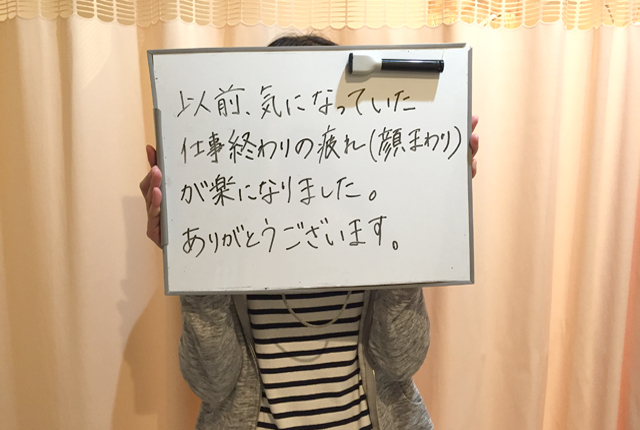 以前、気になっていた
仕事終わりの疲れ(顔まわり)
が楽になりました。
ありがとうございます。